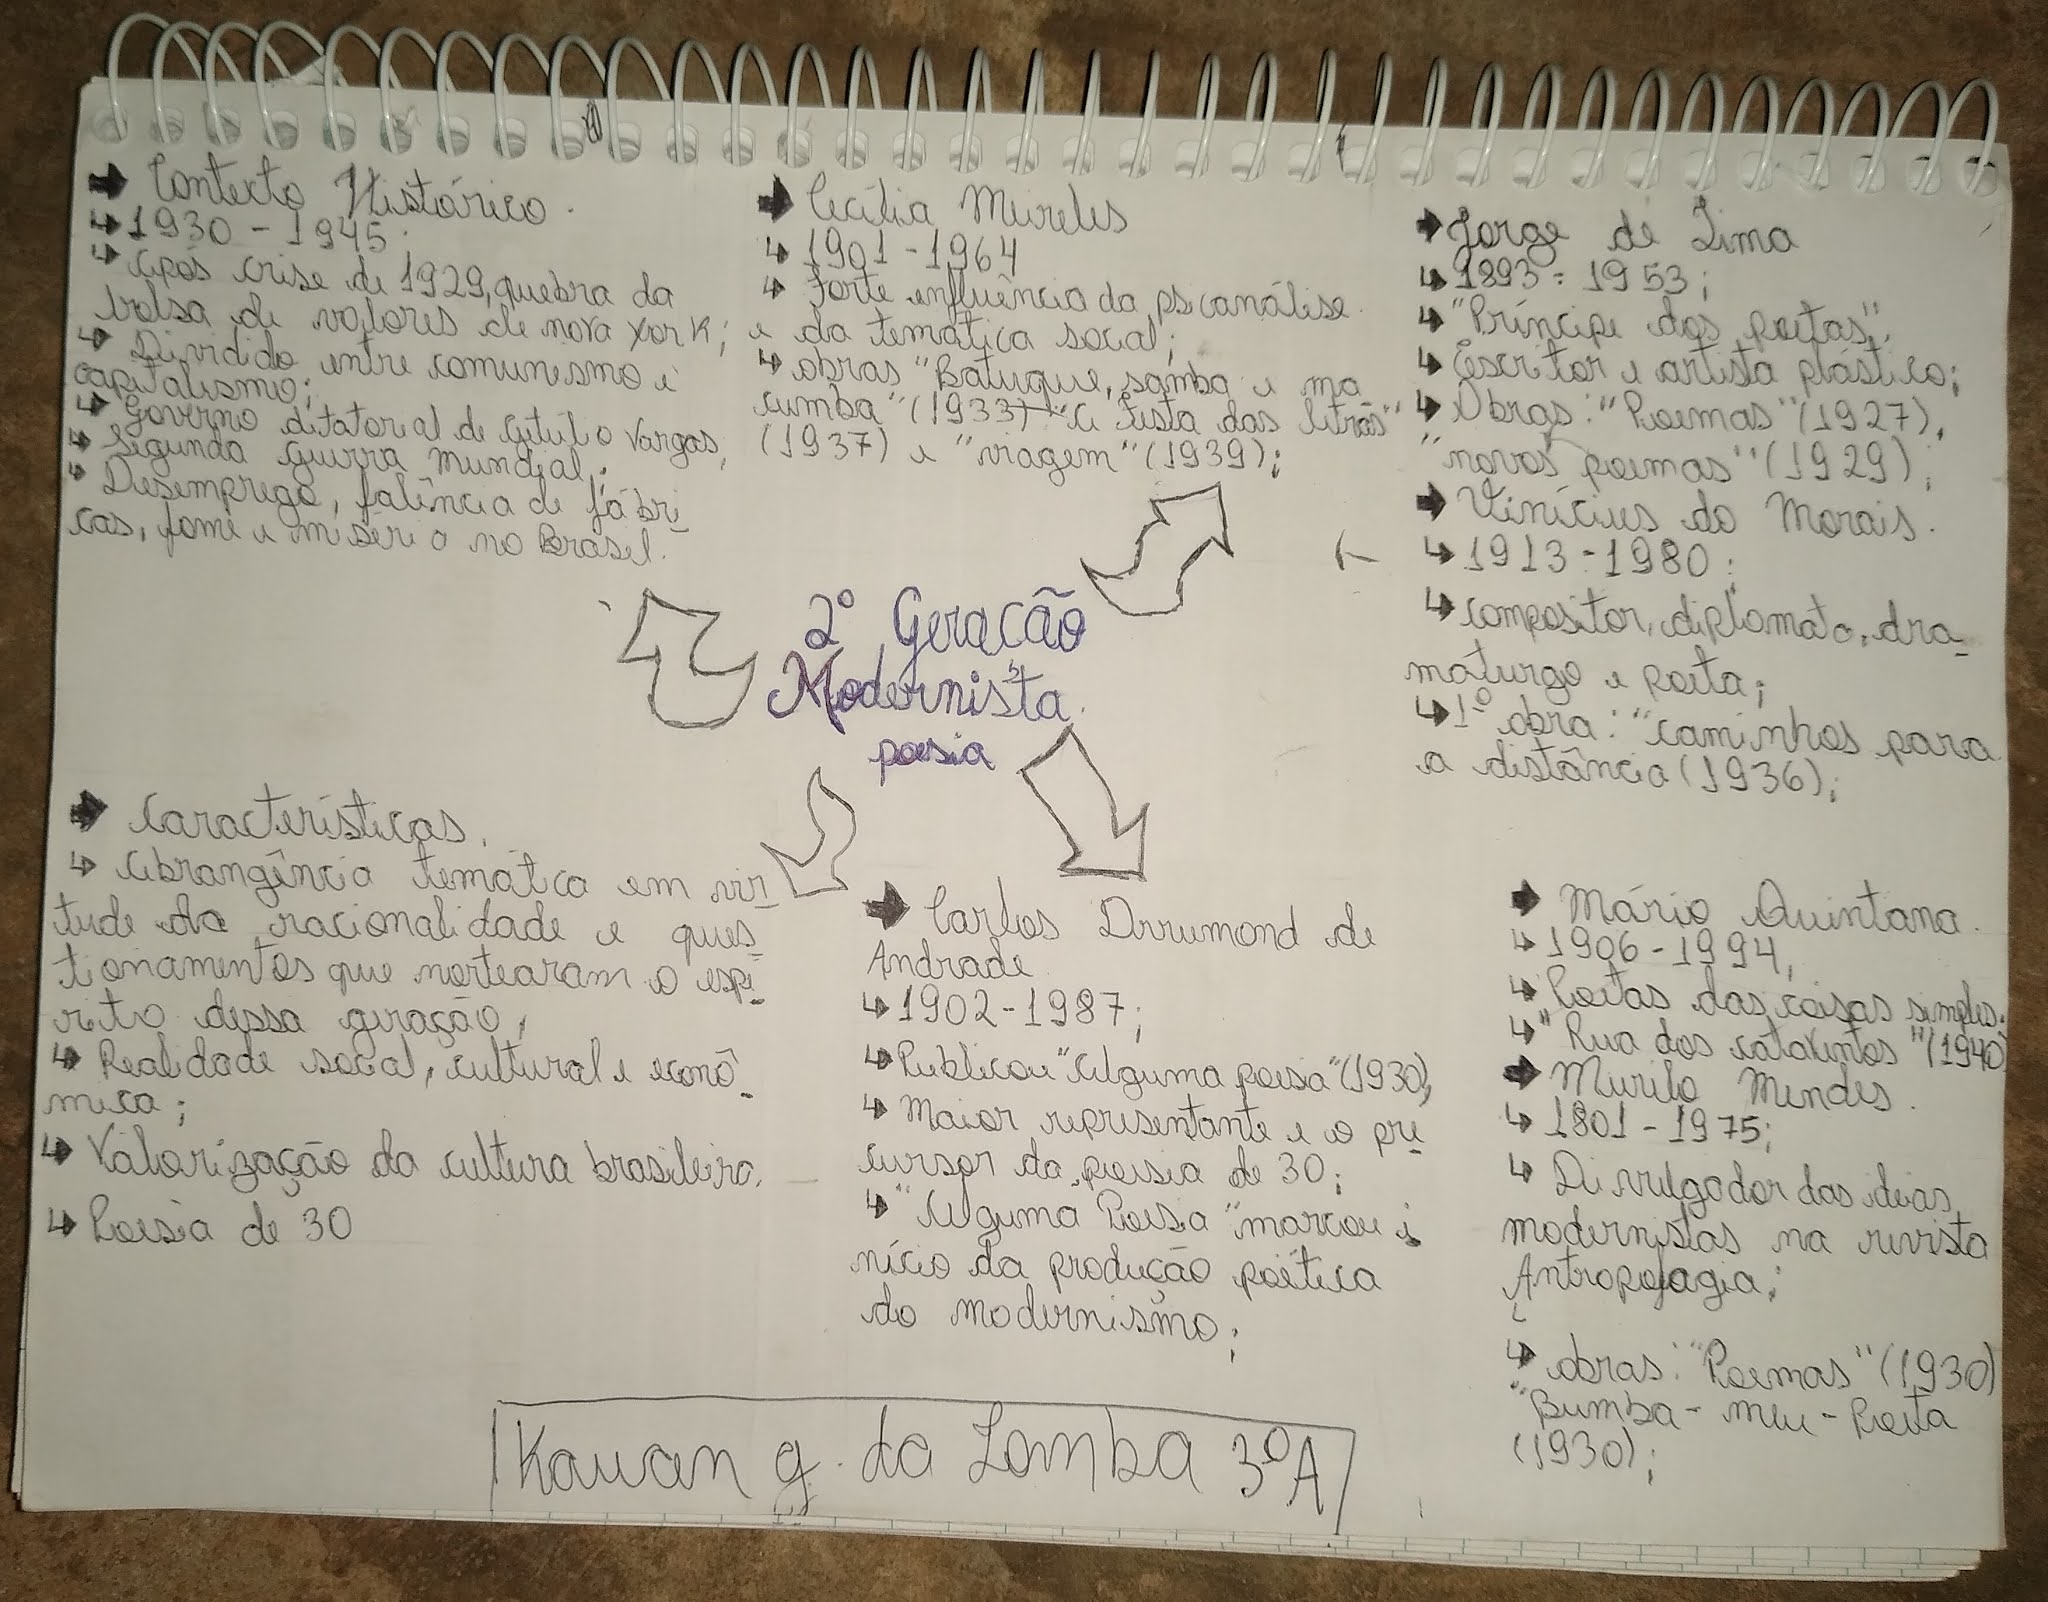 Contexto Histórico.
1930 - 1945;
Após crise de 1929, quebra da
bolsa de valores de nova york;
Dividido entre comunismo e
capitalismo;
Governo ditatorial de Getúlio Vargas,
Segunda guerra mundial;
Desemprego, falência de fábri-
cas, fome e miséria no Brasil.
Cecília Meireles
1901 - 1964
Forte influência da psicanálise
e da temática social;
obras "Batuque, samba e ma
cumba" (1933) "A festa das letras"
(1937) e "viagem" (1939);
Jorge de Lima
1893 - 1953;
"Príncipe dos poetas";
Escritor e artista plástico;
Obras: "Poemas" (1927),
"novos poemas" (1929);
Vinícius do Morais.
1913 - 1980;
compositor, diplomata, dra-
maturgo e poeta;
1º obra: "caminhos para
a distância (1936);
2º Geração
Modernista.
poesia
Características.
Abrangência temática em vir-
tude da racionalidade e ques-
tionamentos que nortearam o espí-
rito dessa geração,
Realidade social, cultural e econô-
mica;
Valorização da cultura brasileira.
Poesia de 30
Carlos Drrumond de
Andrade
1902 - 1987;
Publicou "Alguma poesia" (1930),
Maior representante e o pre
cursor da poesia de 30;
"Alguma Poesia" marcou i
nício da produção poética
do modernismo;
Mário Quintana.
1906 - 1994,
Poetas das coisas simples.
"Rua dos cataventos" (1940)
Murilo Mendes.
1801 - 1975;
Divulgador das ideias
modernistas na revista
Antropofagia;
obras: "Poemas" (1930)
"Bumba - meu - Poeta
(1930);
Kauan g. da Lomba 3ºA